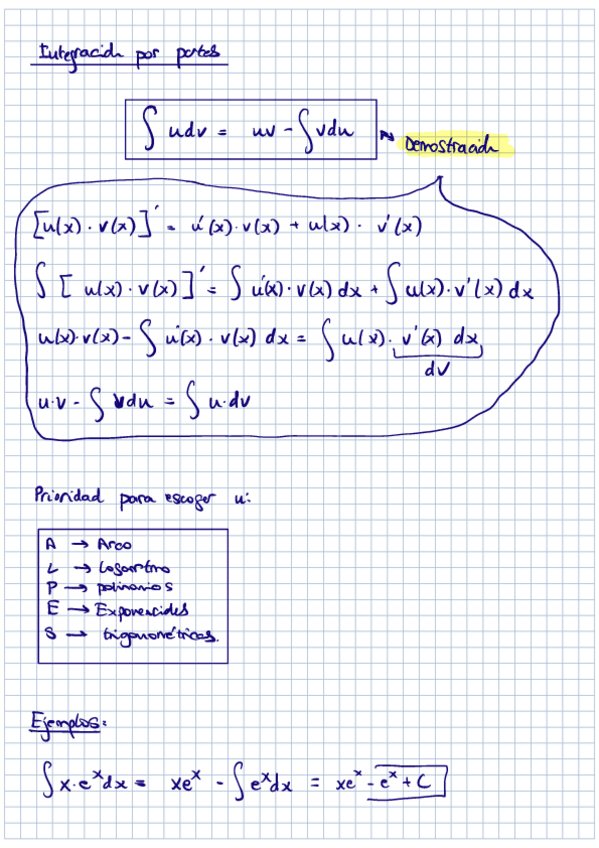 Integración por partes
∫ u dv = uv - ∫ v du → Demostración
[u(x) · v(x)]' = u'(x) · v(x) + u(x) · v'(x)
∫ [ u(x) · v(x) ]' = ∫ u'(x) · v(x) dx + ∫ u(x) · v'(x) dx
u(x)·v(x) - ∫ u'(x) · v(x) dx = ∫ u(x) · v'(x) dx
dv
u·v - ∫ v du = ∫ u·dv
Prioridad para escoger u:
A → Arco
L → Logaritmo
P → polinomios
E → Exponenciales
S → trigonométricas.
Ejemplos:
∫ x·e^x dx = xe^x - ∫ e^x dx = xe^x - e^x + C